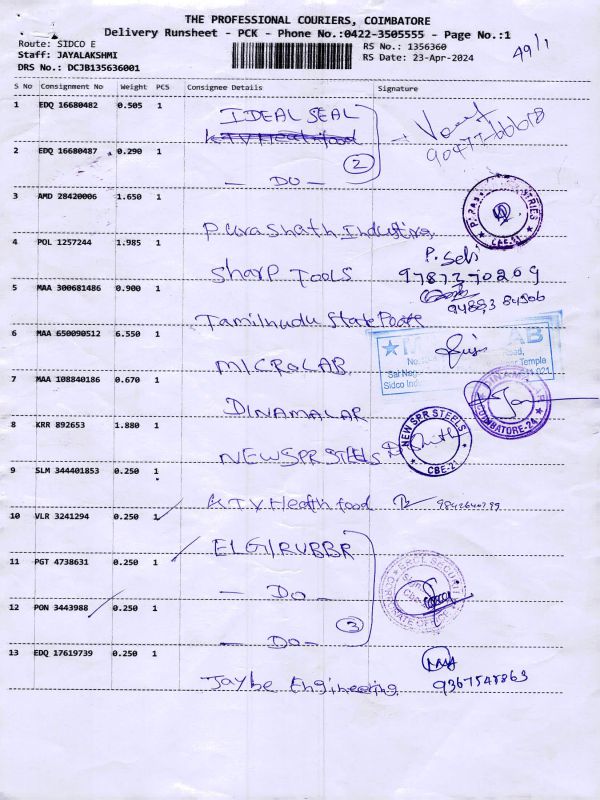 THE PROFESSIONAL COURIERS, COIMBATORE
Delivery Runsheet - PCK - Phone No.:0422-3505555 - Page No.:1
Route: SIDCO E
Staff: JAYALAKSHMI
DRS No.: DCJB135636001
RS No.: 1356360
RS Date: 23-Apr-2024
49/1
S No Consignment No Weight PCS Consignee Details Signature
1 EDQ 16680482 0.505 1 IDEAL SEAL
KTV Health food
2 EDQ 16680487 0.290 1 - DO - 2
3 AMD 28420006 1.650 1 Purashath Industries
4 POL 1257244 1.985 1 Sharp Tools P. Selvi
9787370269
5 MAA 300681486 0.900 1 Tamilnadu State
6 MAA 650090512 6.550 1 MICROLAB
Sidco Temple
7 MAA 108840186 0.670 1 DINAMALAR
COIMBATORE-24
8 KRR 892653 1.880 1 NEW SPR STEELS
NEW SPR STEELS
CBE-21
9 SLM 344401853 0.250 1 KTV Health food
10 VLR 3241294 0.250 1 ELGI RUBBR
11 PGT 4738631 0.250 1 - Do -
12 PON 3443988 0.250 1 - Do - 3
13 EDQ 17619739 0.250 1 Jaybe Engineering
9367547863